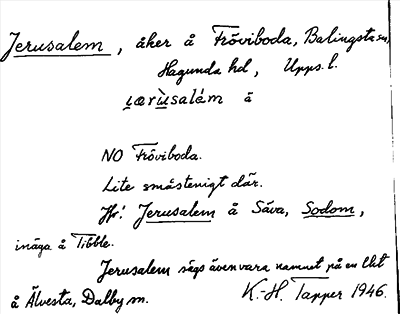 Jerusalem, åker å Fröviboda, Balingsta sn,
Hagunda hd, Upps. l.
ɩærùsalám å
NO Fröviboda.
Lite småstenigt där.
Jfr: Jerusalem å Säva, Sodom,
inäga å Tibble.
Jerusalem sägs även vara namnet på en lht
å Älvesta, Dalby sn. K.-H. Tapper 1946.